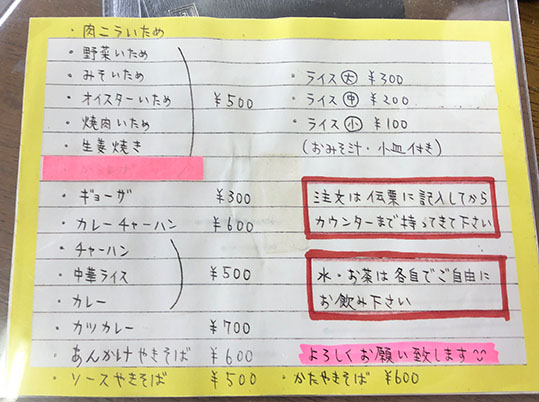 ・肉こういため
・野菜いため
・みそいため
・オイスターいため ¥500
・焼肉いため
・生姜焼き
・ギョーザ ¥300
・カレーチャーハン ¥600
・チャーハン
・中華ライス ¥500
・カレー
・カツカレー ¥700
・あんかけやきそば ¥600
・ソースやきそば ¥500
・ライス大 ¥300
・ライス中 ¥200
・ライス小 ¥100
(おみそ汁・小皿付き)
注文は伝票に記入してから
カウンターまで持ってきて下さい
水・お茶は各自でご自由に
お飲み下さい
よろしくお願い致します
・かたやきそば ¥600